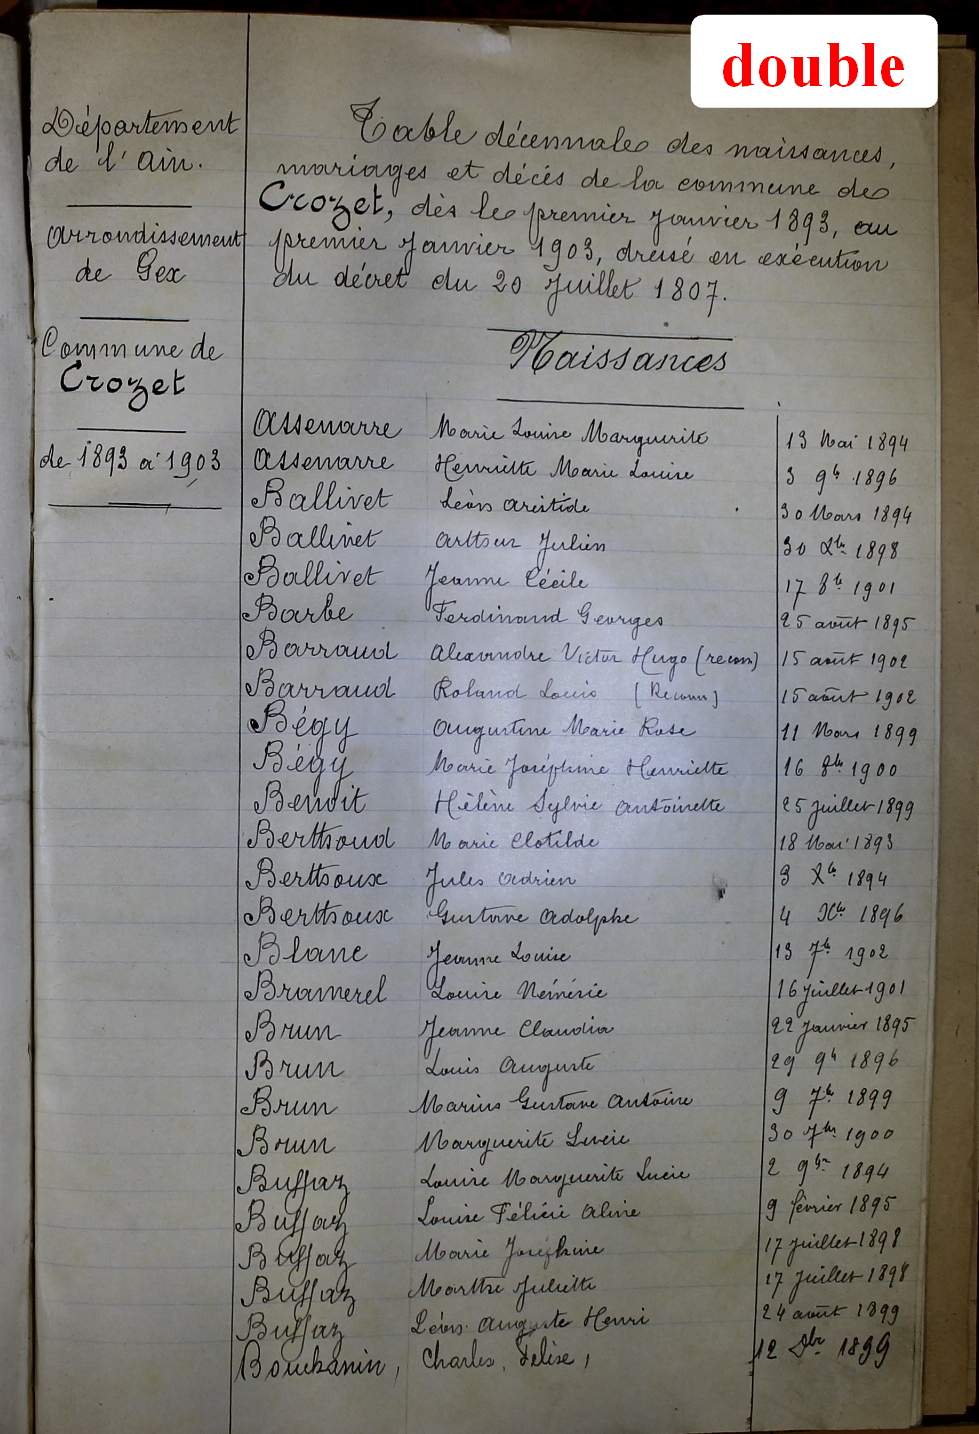 double
Département
de l'Ain.
Arrondissement
de Gex
Commune de
Crozet
de 1893 à 1903
Table décennale des naissances,
mariages et décés de la commune de
Crozet, dès le premier Janvier 1893, au
premier Janvier 1903, dressé en exécution
du décret du 20 Juillet 1807.
Naissances
Assenarre Marie Louise Marguerite 13 Mai 1894
Assenarre Henriette Marie Louise 3 9b 1896
Ballivet Léon Aristide 30 Mars 1894
Ballivet Arthur Julien 30 Xbr 1898
Ballivet Jeanne Cécile 17 8b 1901
Barbe Ferdinand Georges 25 août 1895
Barraud Alexandre Victor Hugo (recon) 15 août 1902
Barraud Roland Louis (Reconn) 15 août 1902
Bégy Augustine Marie Rose 11 Mars 1899
Bégy Marie Joséphine Henriette 16 8bre 1900
Benoit Hélène Sylvie Antoinette 25 juillet 1899
Berthoud Marie Clotilde 18 Mai 1893
Berthoux Jules Adrien 3 Xbr 1894
Berthoux Gustave Adolphe 4 Xbr 1896
Blanc Jeanne Louise 13 7b 1902
Bramerel Louise Némésie 16 juillet 1901
Brun Jeanne Claudia 22 janvier 1895
Brun Louis Auguste 29 9b 1896
Brun Marius Gustave Antoine 9 7b 1899
Brun Marguerite Lucie 30 7bre 1900
Buffaz Louise Marguerite Lucie 2 9bre 1894
Buffaz Louise Félicie Aline 9 février 1895
Buffaz Marie Joséphine 17 juillet 1898
Buffaz Marthe Juliette 17 juillet 1898
Buffaz Léon Auguste Henri 24 août 1899
Bouchanin, Charles, Félise, 12 Dbr 1899